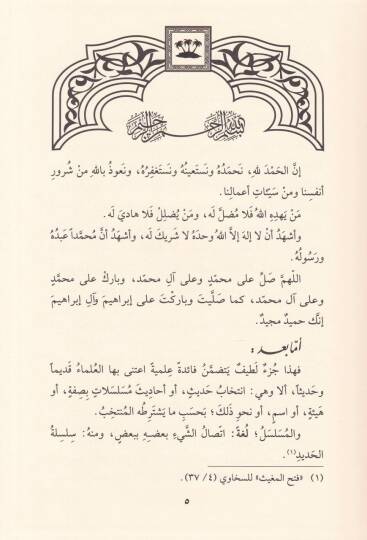 بسم الله الرحمن الرحيم
إنَّ الحَمْدَ للهِ، نَحمَدُهُ ونَستَعينُهُ ونَستَغفِرُهُ، ونَعوذُ باللهِ منْ شُرورِ
أنفسِنا ومنْ سَيِّئاتِ أعمالِنا.
مَنْ يَهدِهِ اللهُ فَلا مُضلَّ لَه، ومَنْ يُضلِلْ فَلا هاديَ لَه.
وأشهَدُ أنْ لا إلهَ إلَّا اللهُ وحدَهُ لا شَريكَ لَه، وأشهَدُ أنَّ مُحمَّداً عَبدُهُ
ورَسُولُهُ.
اللهمَّ صَلِّ على محمّدٍ وعلى آلِ محمّد، وباركْ على محمَّدٍ
وعلى آلِ محمّد، كما صَلَّيتَ وباركْتَ على إبراهيمَ وَآلِ إبراهيمَ
إنَّك حميدٌ مجيدٌ.
أمّا بعد :
فهذا جُزءٌ لَطيفٌ يَتضمَّنُ فائدةً عِلميةً اعتنى بها العُلماءُ قَديماً
وحَديثاً، ألا وهي: انتخابُ حَديثٍ، أو أحاديثَ مُسَلسَلاتٍ بِصِفةٍ، أو
هَيئةٍ، أو اسمٍ، أو نحوِ ذلكَ؛ بَحسَبِ ما يَشتَرِطُه المُنتخِبُ.
والمُسَلسَلُ؛ لُغَةً: اتّصالُ الشَّيءِ بعضِهِ ببعضٍ، ومنهُ: سِلسِلةُ
الحَديدِ(١).
(١) «فتح المغيث» للسخاوي (٤/ ٣٧).
٥